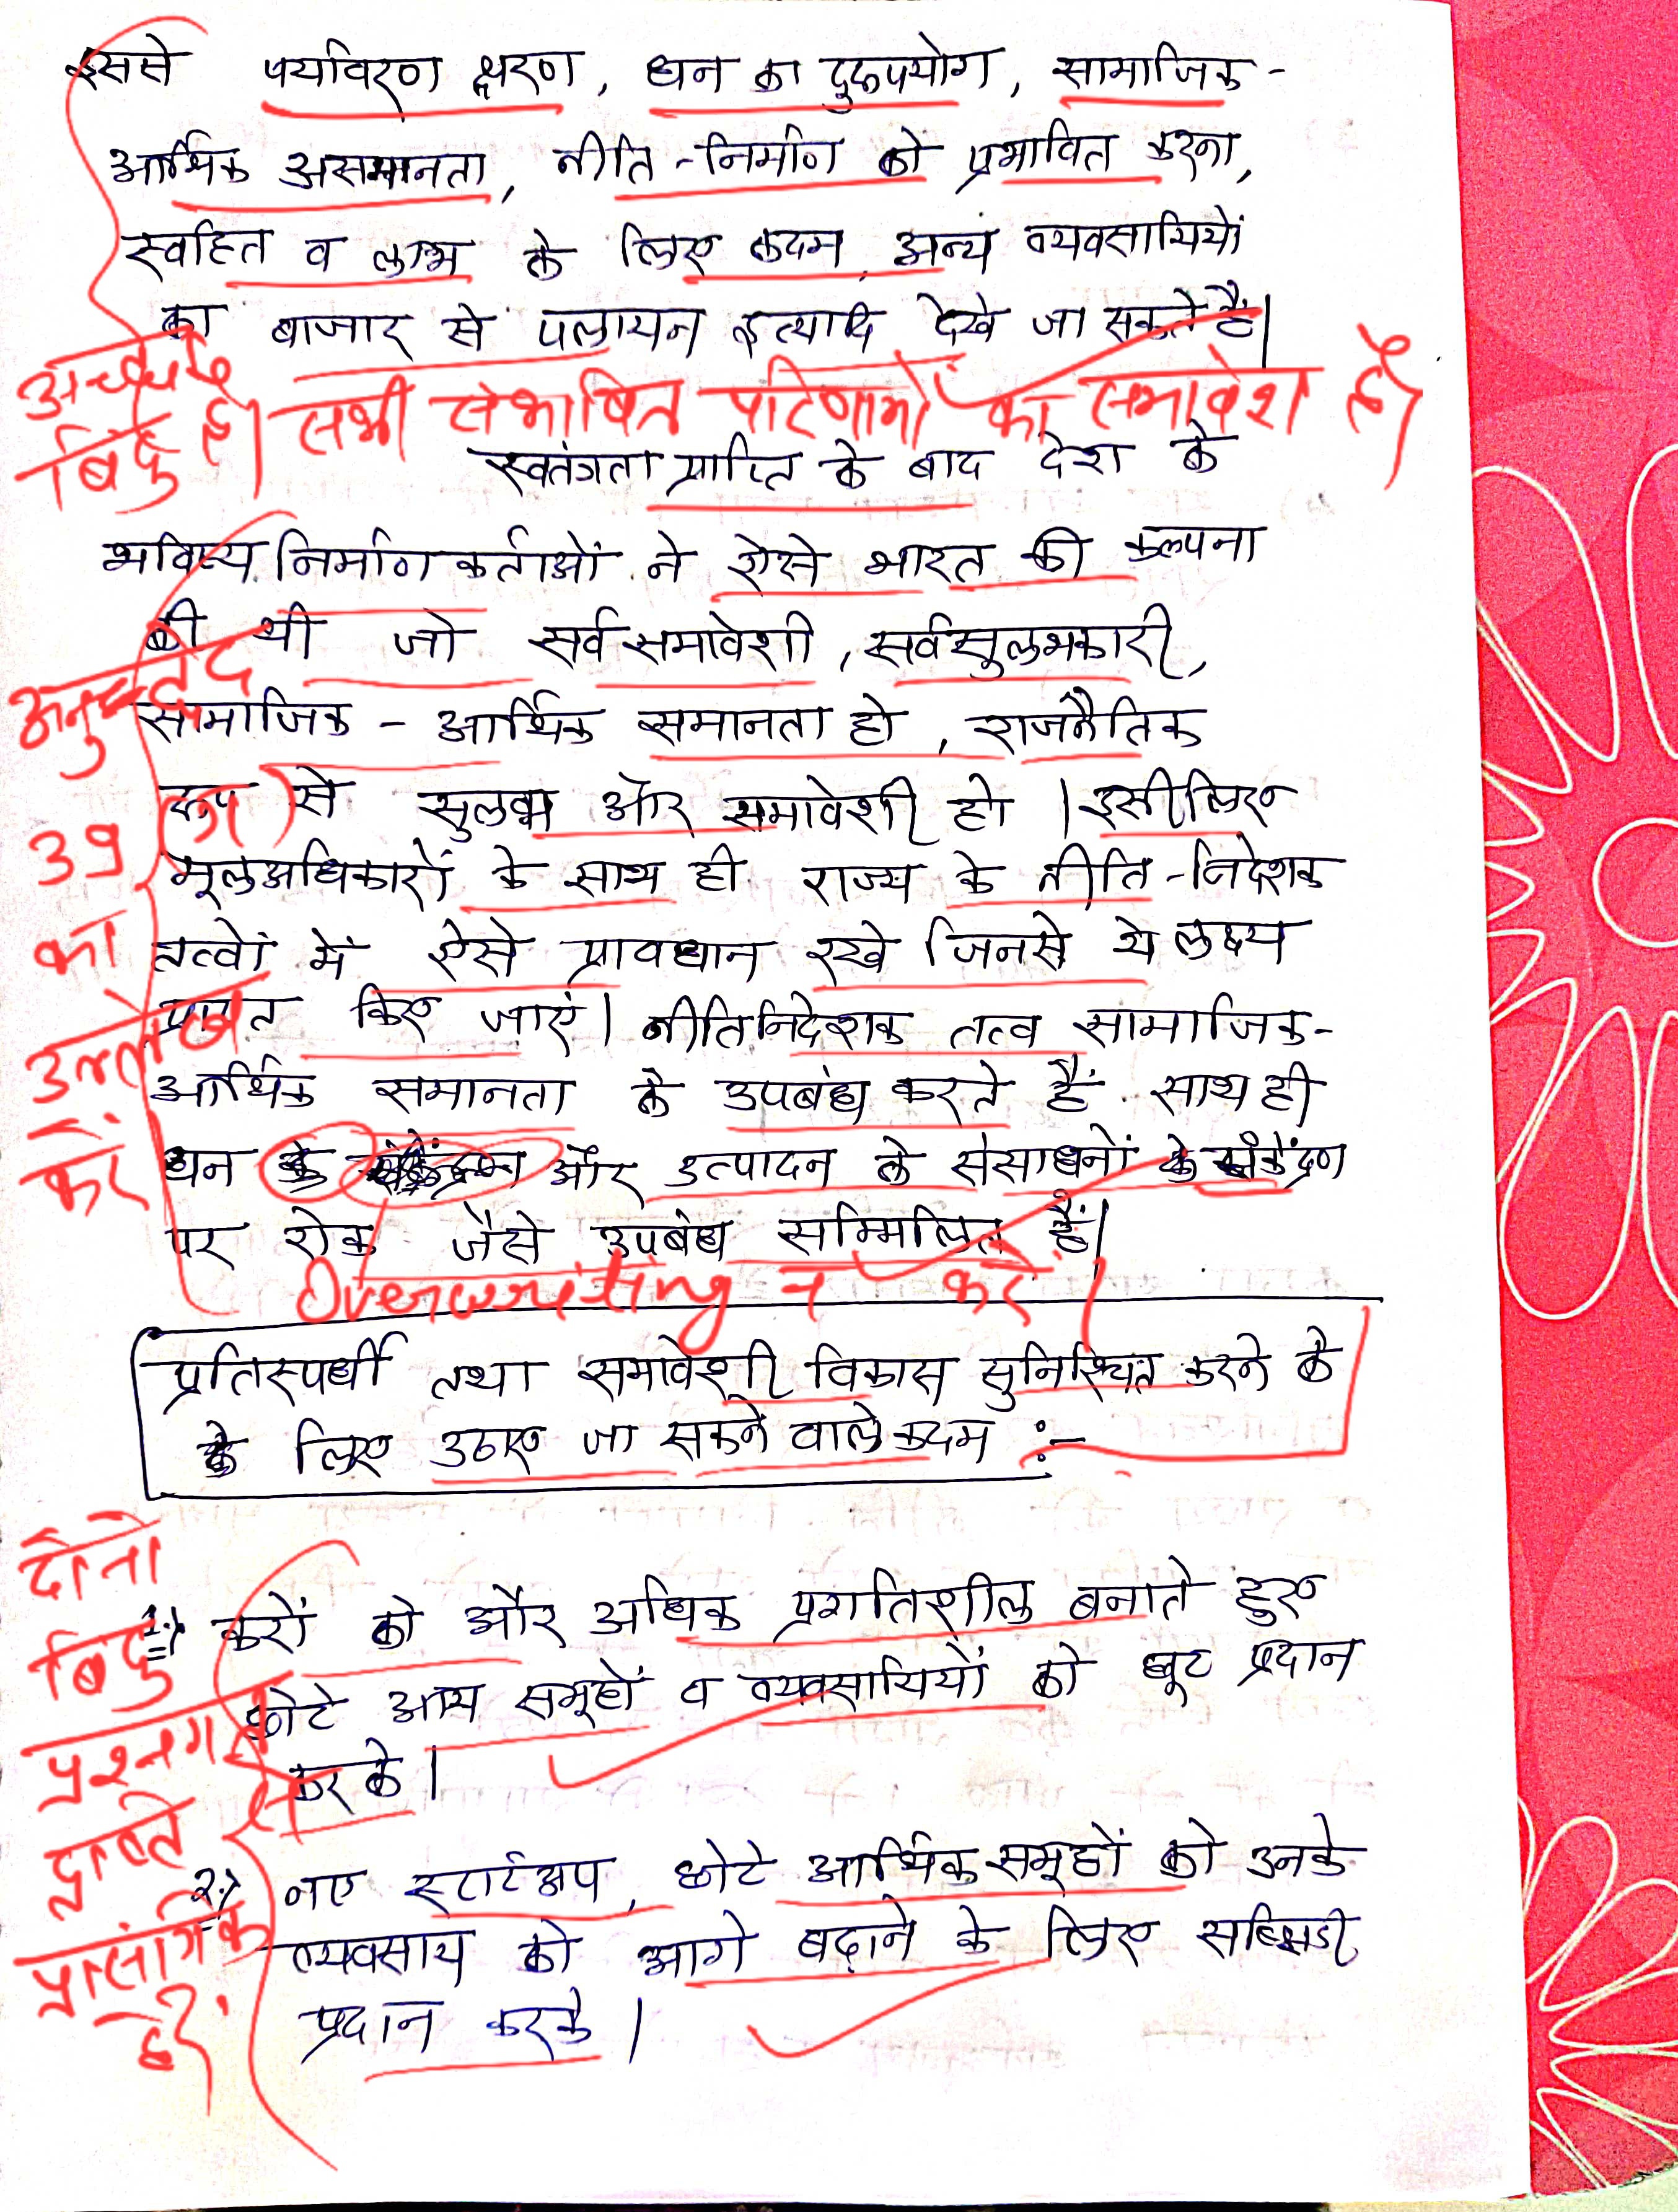 इससे पर्यावरण क्षरण, धन का दुरूपयोग, सामाजिक-
आर्थिक असमानता, नीति-निर्माण को प्रभावित करना,
स्वहित व लाभ के लिए कदम, अन्य व्यवसायियों
का बाजार से पलायन इत्यादि देखे जा सकते हैं।
अच्छे
बिंदु हैं। सभी संभावित परिणामों का समावेश है
स्वतंत्रता प्राप्ति के बाद देश के
भविष्य निर्माणकर्ताओं ने ऐसे भारत की कल्पना
की थी जो सर्वसमावेशी, सर्वसुलभकारी,
सामाजिक - आर्थिक समानता हो, राजनैतिक
रूप से सुलभ और समावेशी हो। इसीलिए
मूलअधिकारों के साथ ही राज्य के नीति-निदेशक
तत्वों में ऐसे प्रावधान रखे जिनसे ये लक्ष्य
प्राप्त किए जाएं। नीतिनिदेशक तत्व सामाजिक-
आर्थिक समानता के उपबंध करते हैं साथ ही
धन के और उत्पादन के संसाधनों के संकेंद्रण
पर रोक जैसे उपबंध सम्मिलित हैं।
अनुच्छेद
39
का
उल्लेख
करें
Overwriting न करें।
प्रतिस्पर्धी तथा समावेशी विकास सुनिश्चित करने के
के लिए उठाए जा सकने वाले कदम :-
दोनों
बिंदु
प्रश्नगत
दृष्टि से
प्रासंगिक
हैं.
1.) करों को और अधिक प्रगतिशील बनाते हुए
छोटे आय समूहों व व्यवसायियों को छूट प्रदान
कर के।
2.) नए स्टार्टअप, छोटे आर्थिक समूहों को उनके
व्यवसाय को आगे बढ़ाने के लिए सब्सिडी
प्रदान करके।